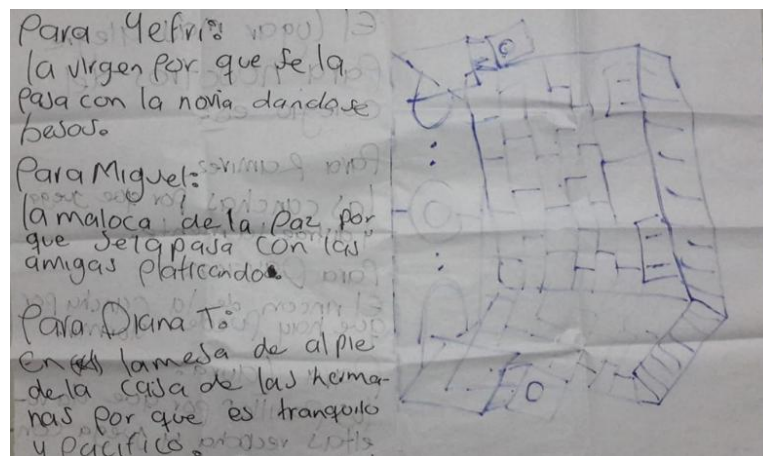 Para Yefri:
la virgen por que se la
pasa con la novia dandose
besos.
Para Miguel:
la maloca de la paz por
que selapasa con las
amigas platicando.
Para Diana T:
En lamesa de alpie
dela casa de las herma-
nas por que es tranquilo
y pacifico.